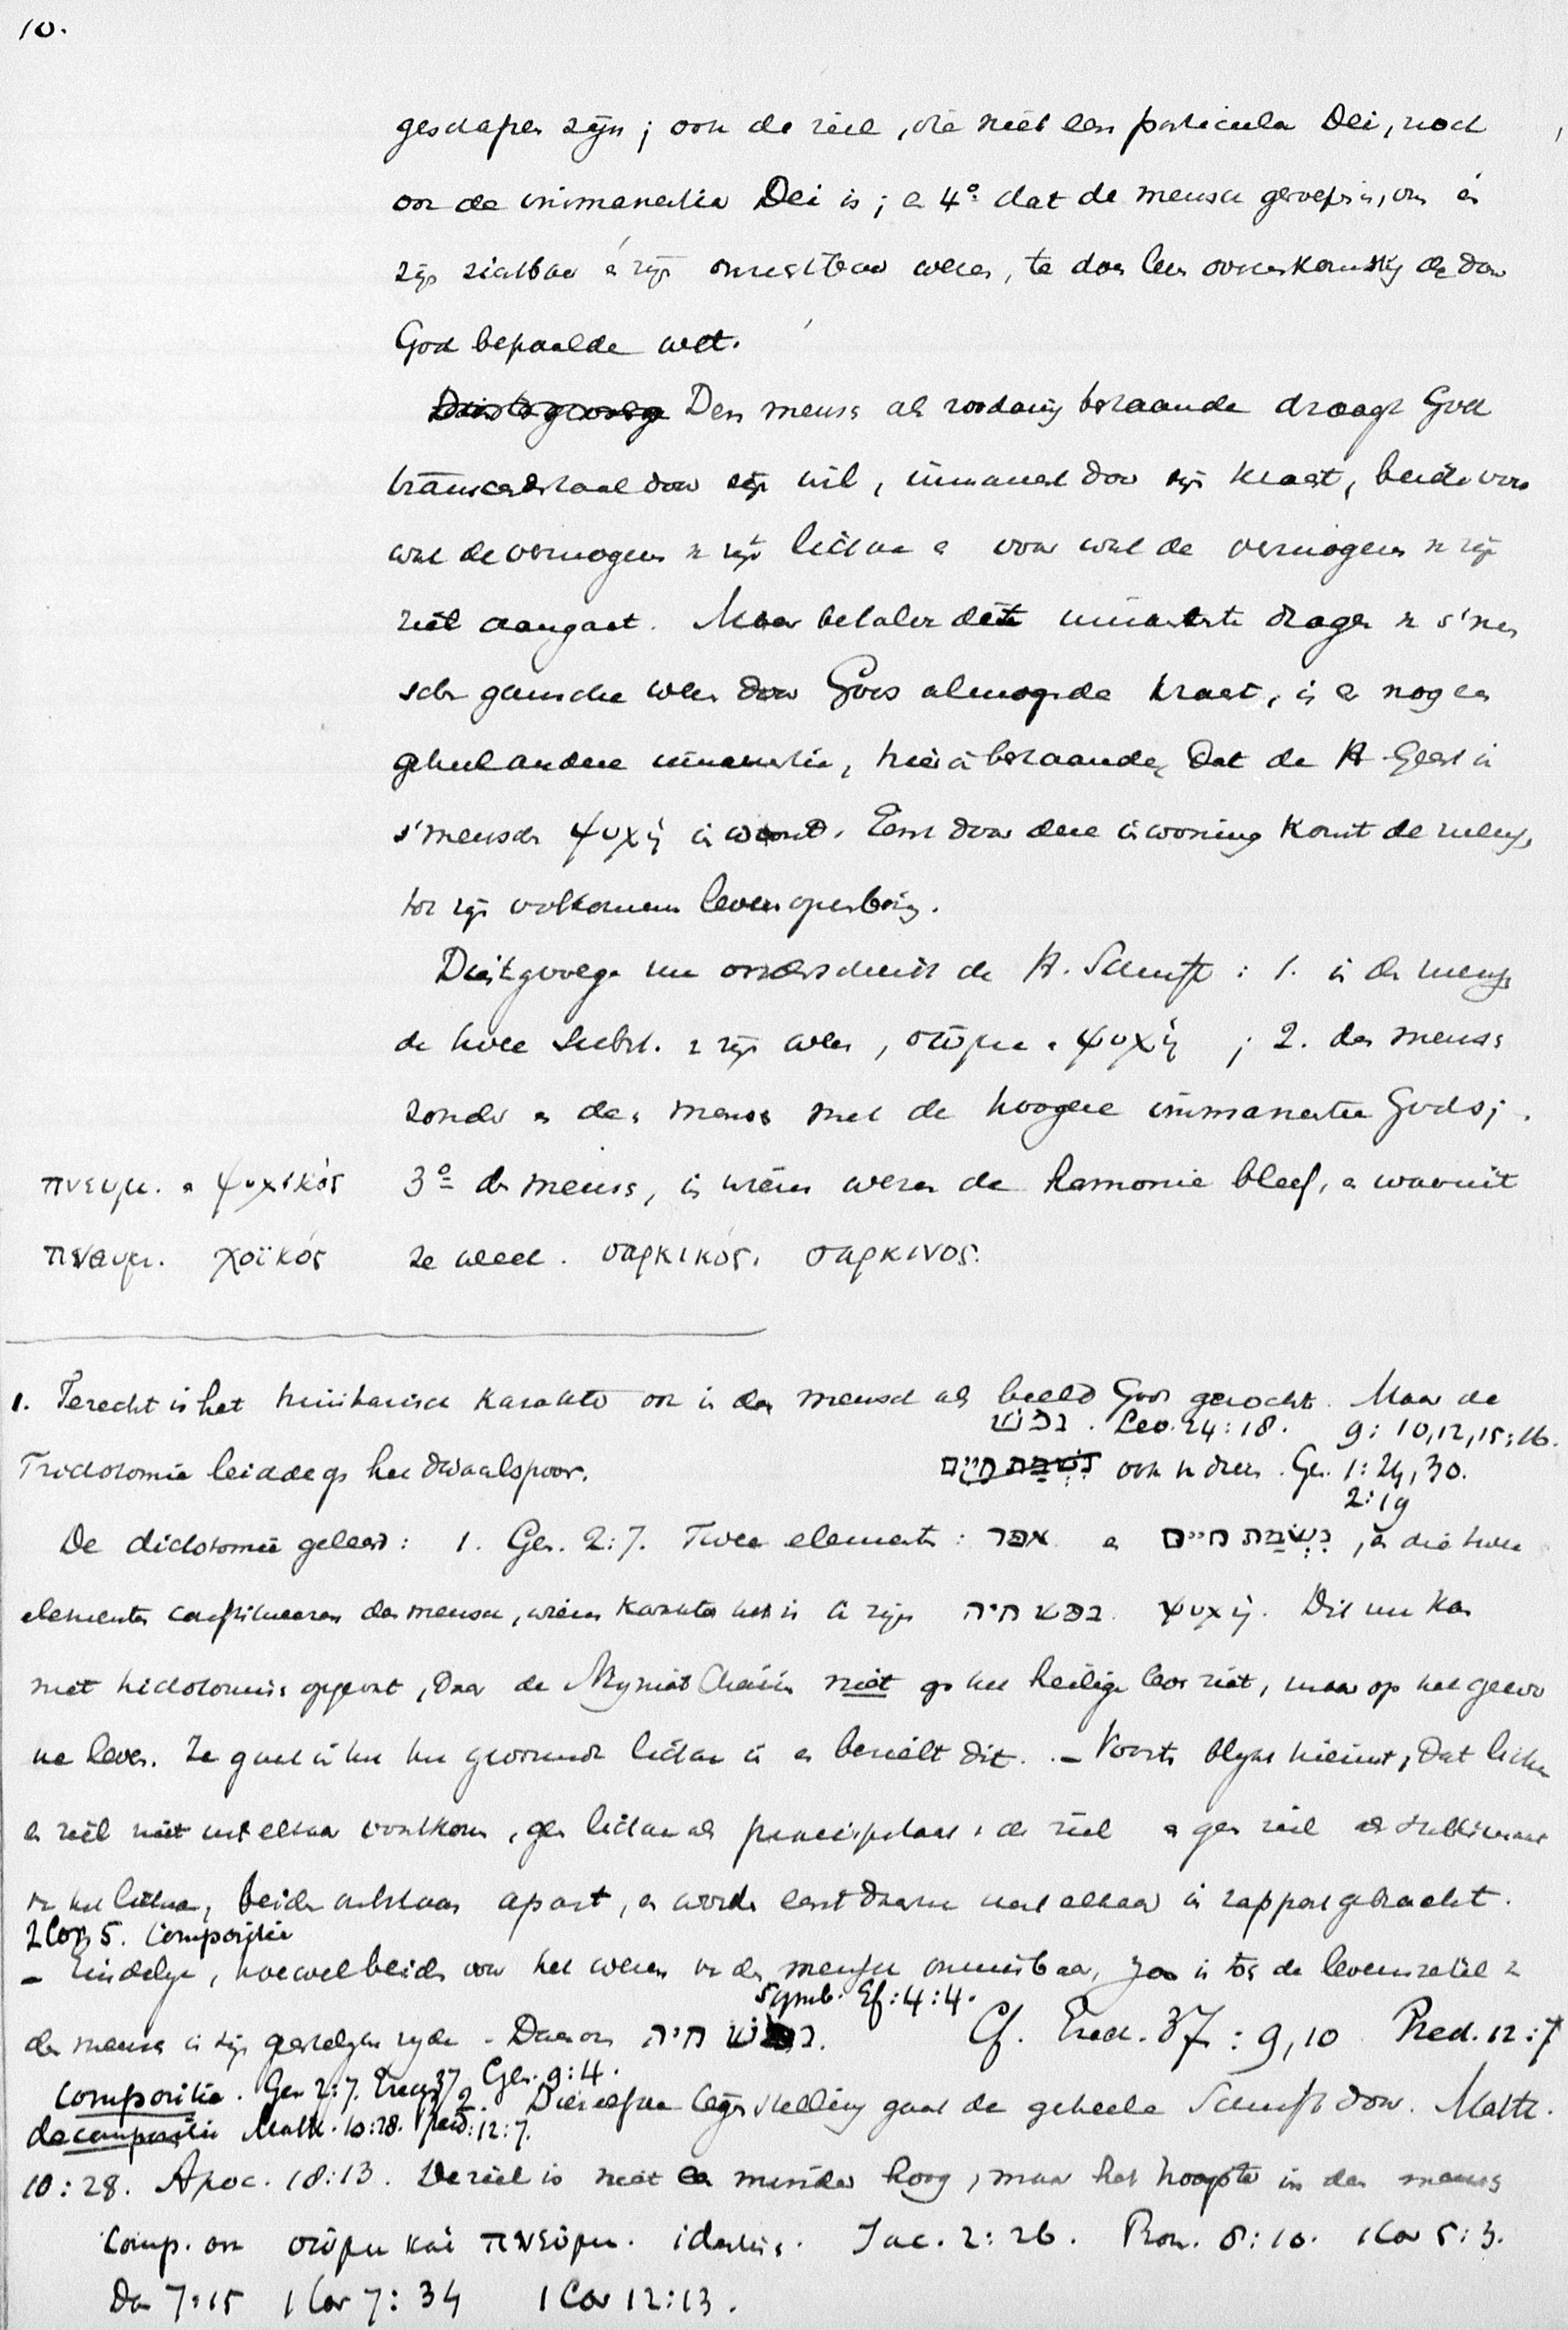 10.
geschapen zijn; ook de ziel, die niet een particula Dei, noch
ook de immanentia Dei is; en 4º dat de mensch geroepen is, om in
zijn zichtbaar en zijn onzichtbaar wezen, te doen een overeenkomstig de door
God bepaalde wet.
Den mensch als zoodanig bestaande draagt God
transcendentaal door zijn wil, immanent door zijn kracht, beide voor
wat de vermogens v zijn lichaam en voor wat de vermogens v zijn
ziel aangaat. Maar behalve dit immanente dragen v s'men
schen gansche wezen door Gods almogende kracht, is er nog een
geheel andere immanentie, hierin bestaande, dat de H. Geest in
s'menschen ψυχή in woont. Eerst door deze inwoning komt de mensch
tot zijn volkomen levensopenbaring.
Dientgevolge nu onderscheidt de H. Schrift: 1. in den mensch
de twee subst. v zijn wezen, σῶμα en ψυχή; 2. den mensch
zonder en den mensch met de hoogere immanentie Gods;
πνευμ. en ψυχικός 3º den mensch, in wiens wezen de harmonie bleef, en waaruit
πνευμ. χοϊκός ze week. σαρκικός. σαρκινος.
1. Terecht is het trinitarisch karakter ook in den mensch als beeld Gods gezocht. Maar de
נפש. Lev. 24:18. 9:10,12,15,16.
Trichotomie leidde op het dwaalspoor. נשמת חיים ook v dieren. Gen. 1:24,30.
2:19
De dichotomie geleerd: 1. Gen. 2:7. Twee elementen: אפר en נשמת חיים, en die twee
elementen constitueeren den mensch, wiens karakter het is te zijn נפש חיה. ψυχή. Dit nu kan
niet trichotomisch opgevat, daar de Nismat Chaiim niet op het heilige leven ziet, maar op het gewo
ne leven. Ze gaat in het geformeerde lichaam in en bezielt dit. – Voorts blijkt hieruit, dat lichaam
en ziel niet uit elkaar voortkomen, geen lichaam als praecipitaat v de ziel en geen ziel als sublimaat
v het lichaam, beide ontstaan apart, en worden eerst daarna met elkaar in rapport gebracht.
2 Cor. 5. Compositie
– Eindelijk, hoewel beide voor het wezen v den mensch onmisbaar, is toch de levenszetel v
Symb. Ef: 4:4.
den mensch in zijn geestelijke zijde. Daarom נפש חיה. Cf. Ezech. 37:9,10 Pred. 12:7
Compositie. Gen 2:7. Ezech 37 Gen. 9:4.
Diezelfde tegenstelling gaat de geheele Schrift door. Matth.
decompositie Matth. 10:28. Pred: 12:7.
10:28. Apoc. 18:13. De ziel is niet een minder hoog, maar het hoogste in den mensch
Comp. ook σῶμα καὶ πνεῦμα. identisch. Jac. 2:26. Rom. 8:10. 1 Cor 5:3.
Dan 7:15 1 Cor 7:34 1 Cor 12:13.